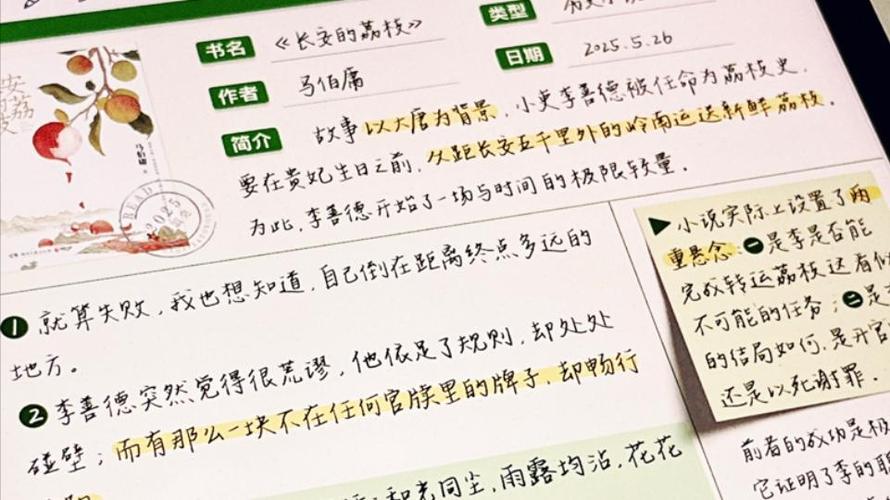 书名 《长安的荔枝》
类型
作者 马伯庸
日期 2025.5.26
简介 故事以大唐为背景,小吏李善德被任命为荔枝史,
要在贵妃生日之前,从距长安五千里外的岭南运送新鲜荔枝。
为此,李善德开始了一场与时间的极限较量。
马伯庸
READ
2025
1 就算失败,我也想知道,自己倒在距离终点多远的
地方。
2 李善德突然觉得很荒谬,他依足了规则,却处处
碰壁;而有那么一块不在任何官牍里的牌子,却畅行
和光同尘,雨露均沾,花花
▶小说实际上设置了两
重悬念:一是李是否能
完成转运荔枝这看似
不可能的任务;二是
的结局如何,是升官
还是以死谢罪。
前者的成功是极
它证明了李的职